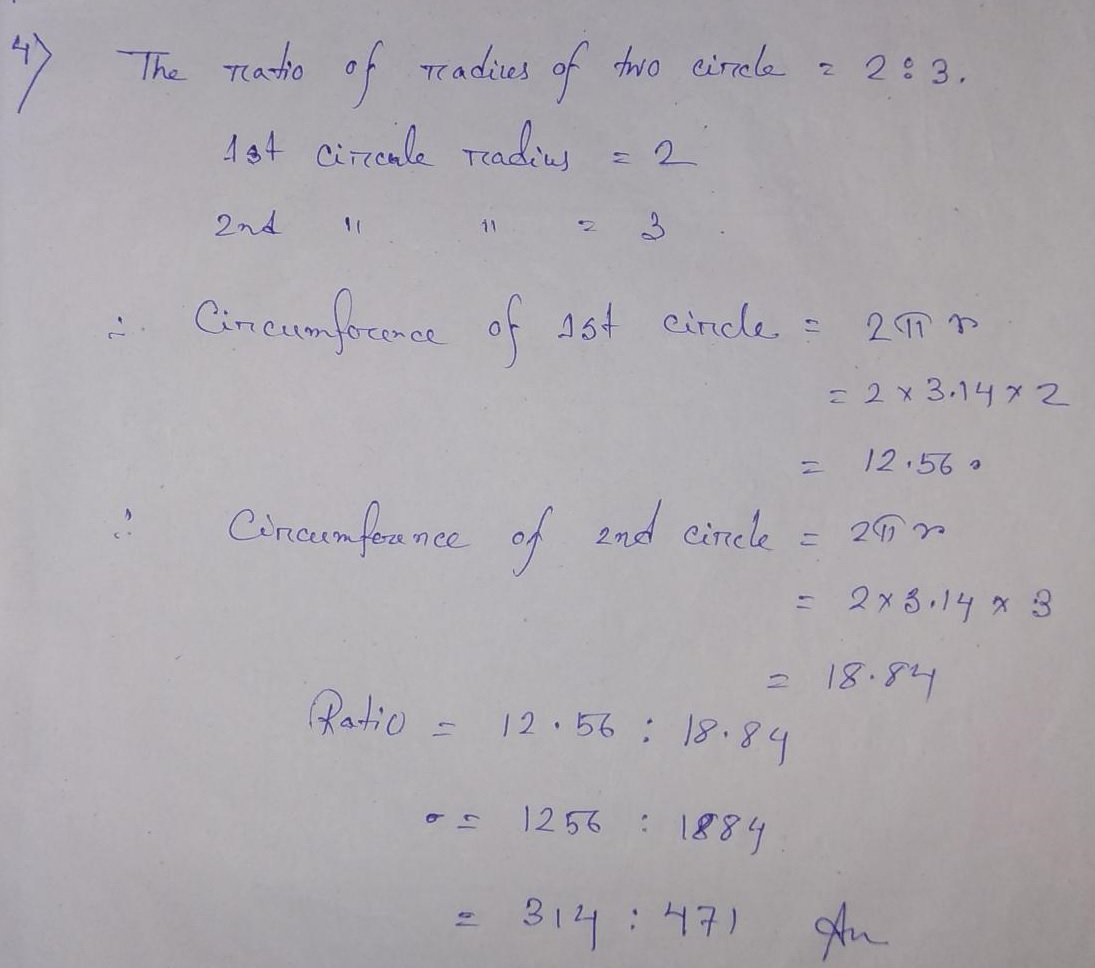 4) The ratio of radius of two circle = 2:3.
1st circule radius = 2
2nd " " = 3
∴ Circumference of 1st circle = 2πr
= 2 × 3.14 × 2
= 12.56
∴ Circumference of 2nd circle = 2πr
= 2×3.14 × 3
= 18.84
Ratio = 12.56 : 18.84
= 1256 : 1884
= 314 : 471 An